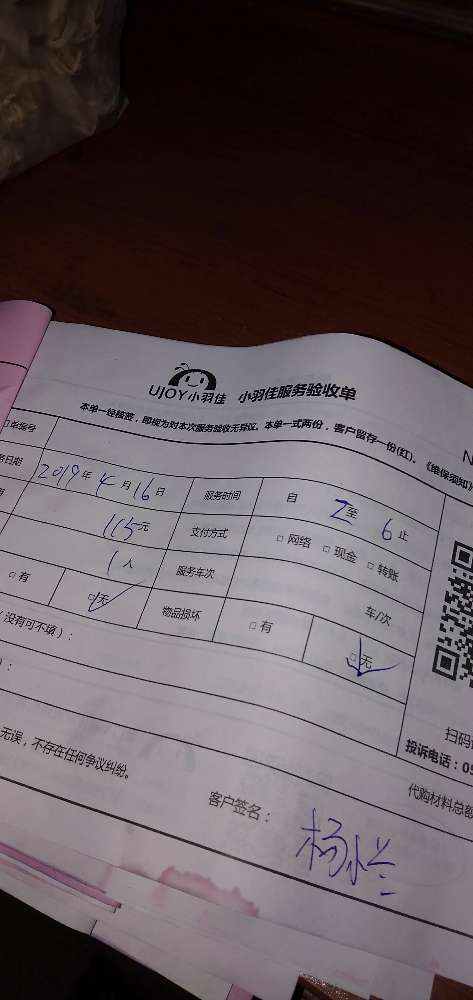 UJOY小羽佳 小羽佳服务验收单
本单一经核签，即视为对本次服务验收无异议。本单一式两份，客户留存一份(红)。《维保须知》
订单编号
务日期 2019年4月16日 服务时间 自 2至 6止
用 115元 支付方式 □网络 □现金 □转账
1人 服务车次 车/次
□有 □无 物品损坏 □有 □无
（没有可不填）：
）：
扫码
投诉电话：05
无误，不存在任何争议纠纷。
代购材料总额
客户签名：